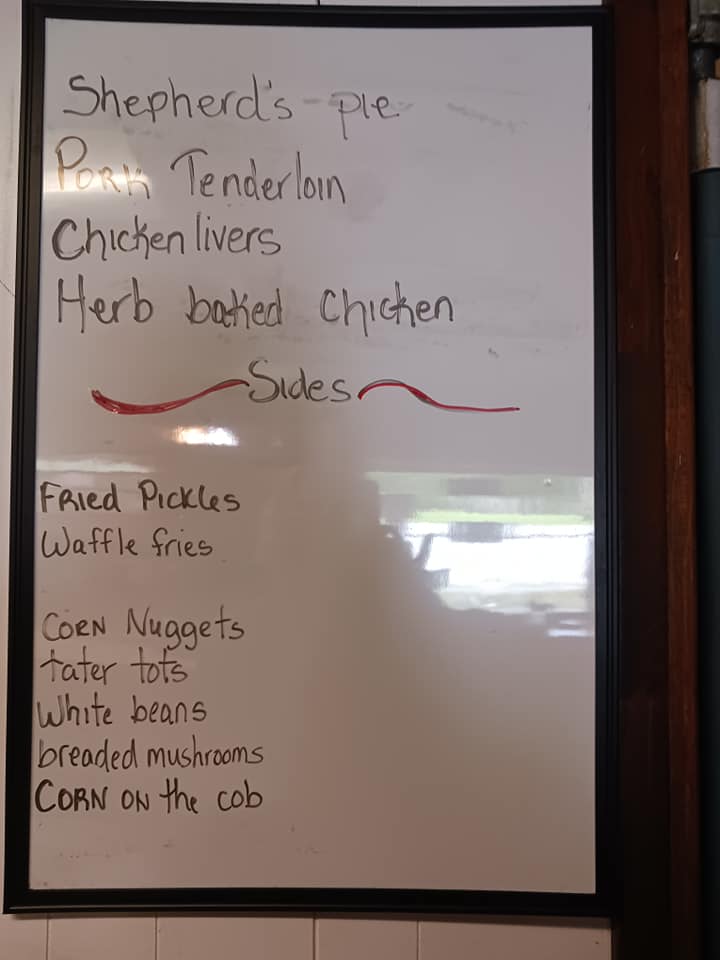 Shepherd's pie
PORK Tenderloin
Chicken livers
Herb baked Chicken
Sides
FRied Pickles
Waffle fries
CORN Nuggets
tater tots
White beans
breaded mushrooms
CORN ON the cob